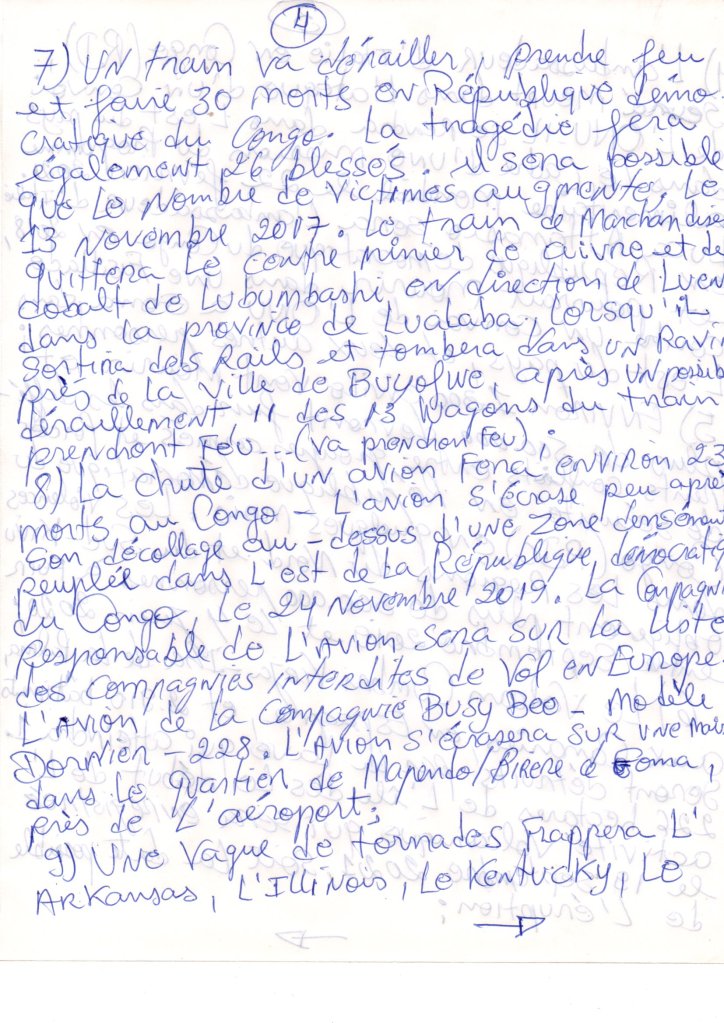 4
7) UN train va dérailler, prendre feu
et faire 30 morts en République démo-
cratique du Congo. La tragédie fera
également 26 blessés. il sera possible
que le nombre de victimes augmente. Le
13 Novembre 2017. Le train de Marchandise
quittera Le centre minier de cuivre et de
cobalt de Lubumbashi en direction de Luen
dans la province de Lualaba, lorsqu'il
sortira des Rails et tombera dans un Ravi
près de la ville de Buyofwe, après un possib
déraillement, 11 des 13 wagons du train
prendront Feu... (va prendron Feu);
8) La chute d'un avion Fera environ 23
morts au Congo - L'avion s'écrase peu aprè
son décollage au-dessus d'une zone densémen
peuplée dans L'est de La République démocratiq
du Congo, Le 24 Novembre 2019. La Compagni
Responsable de L'Avion Sera sur La Liste
des Compagnies interdites de Vol en Europe.
L'Avion de la Compagnie Busy Bee - Modèle
Dornier-228. L'Avion s'écrasera sur une Mais
dans Le quartier de Mapendo/Birere à Goma,
près de L'aéroport;
9) Une Vague de tornades Frappera L'
Arkansas, L'Illinois, Le Kentucky, Le